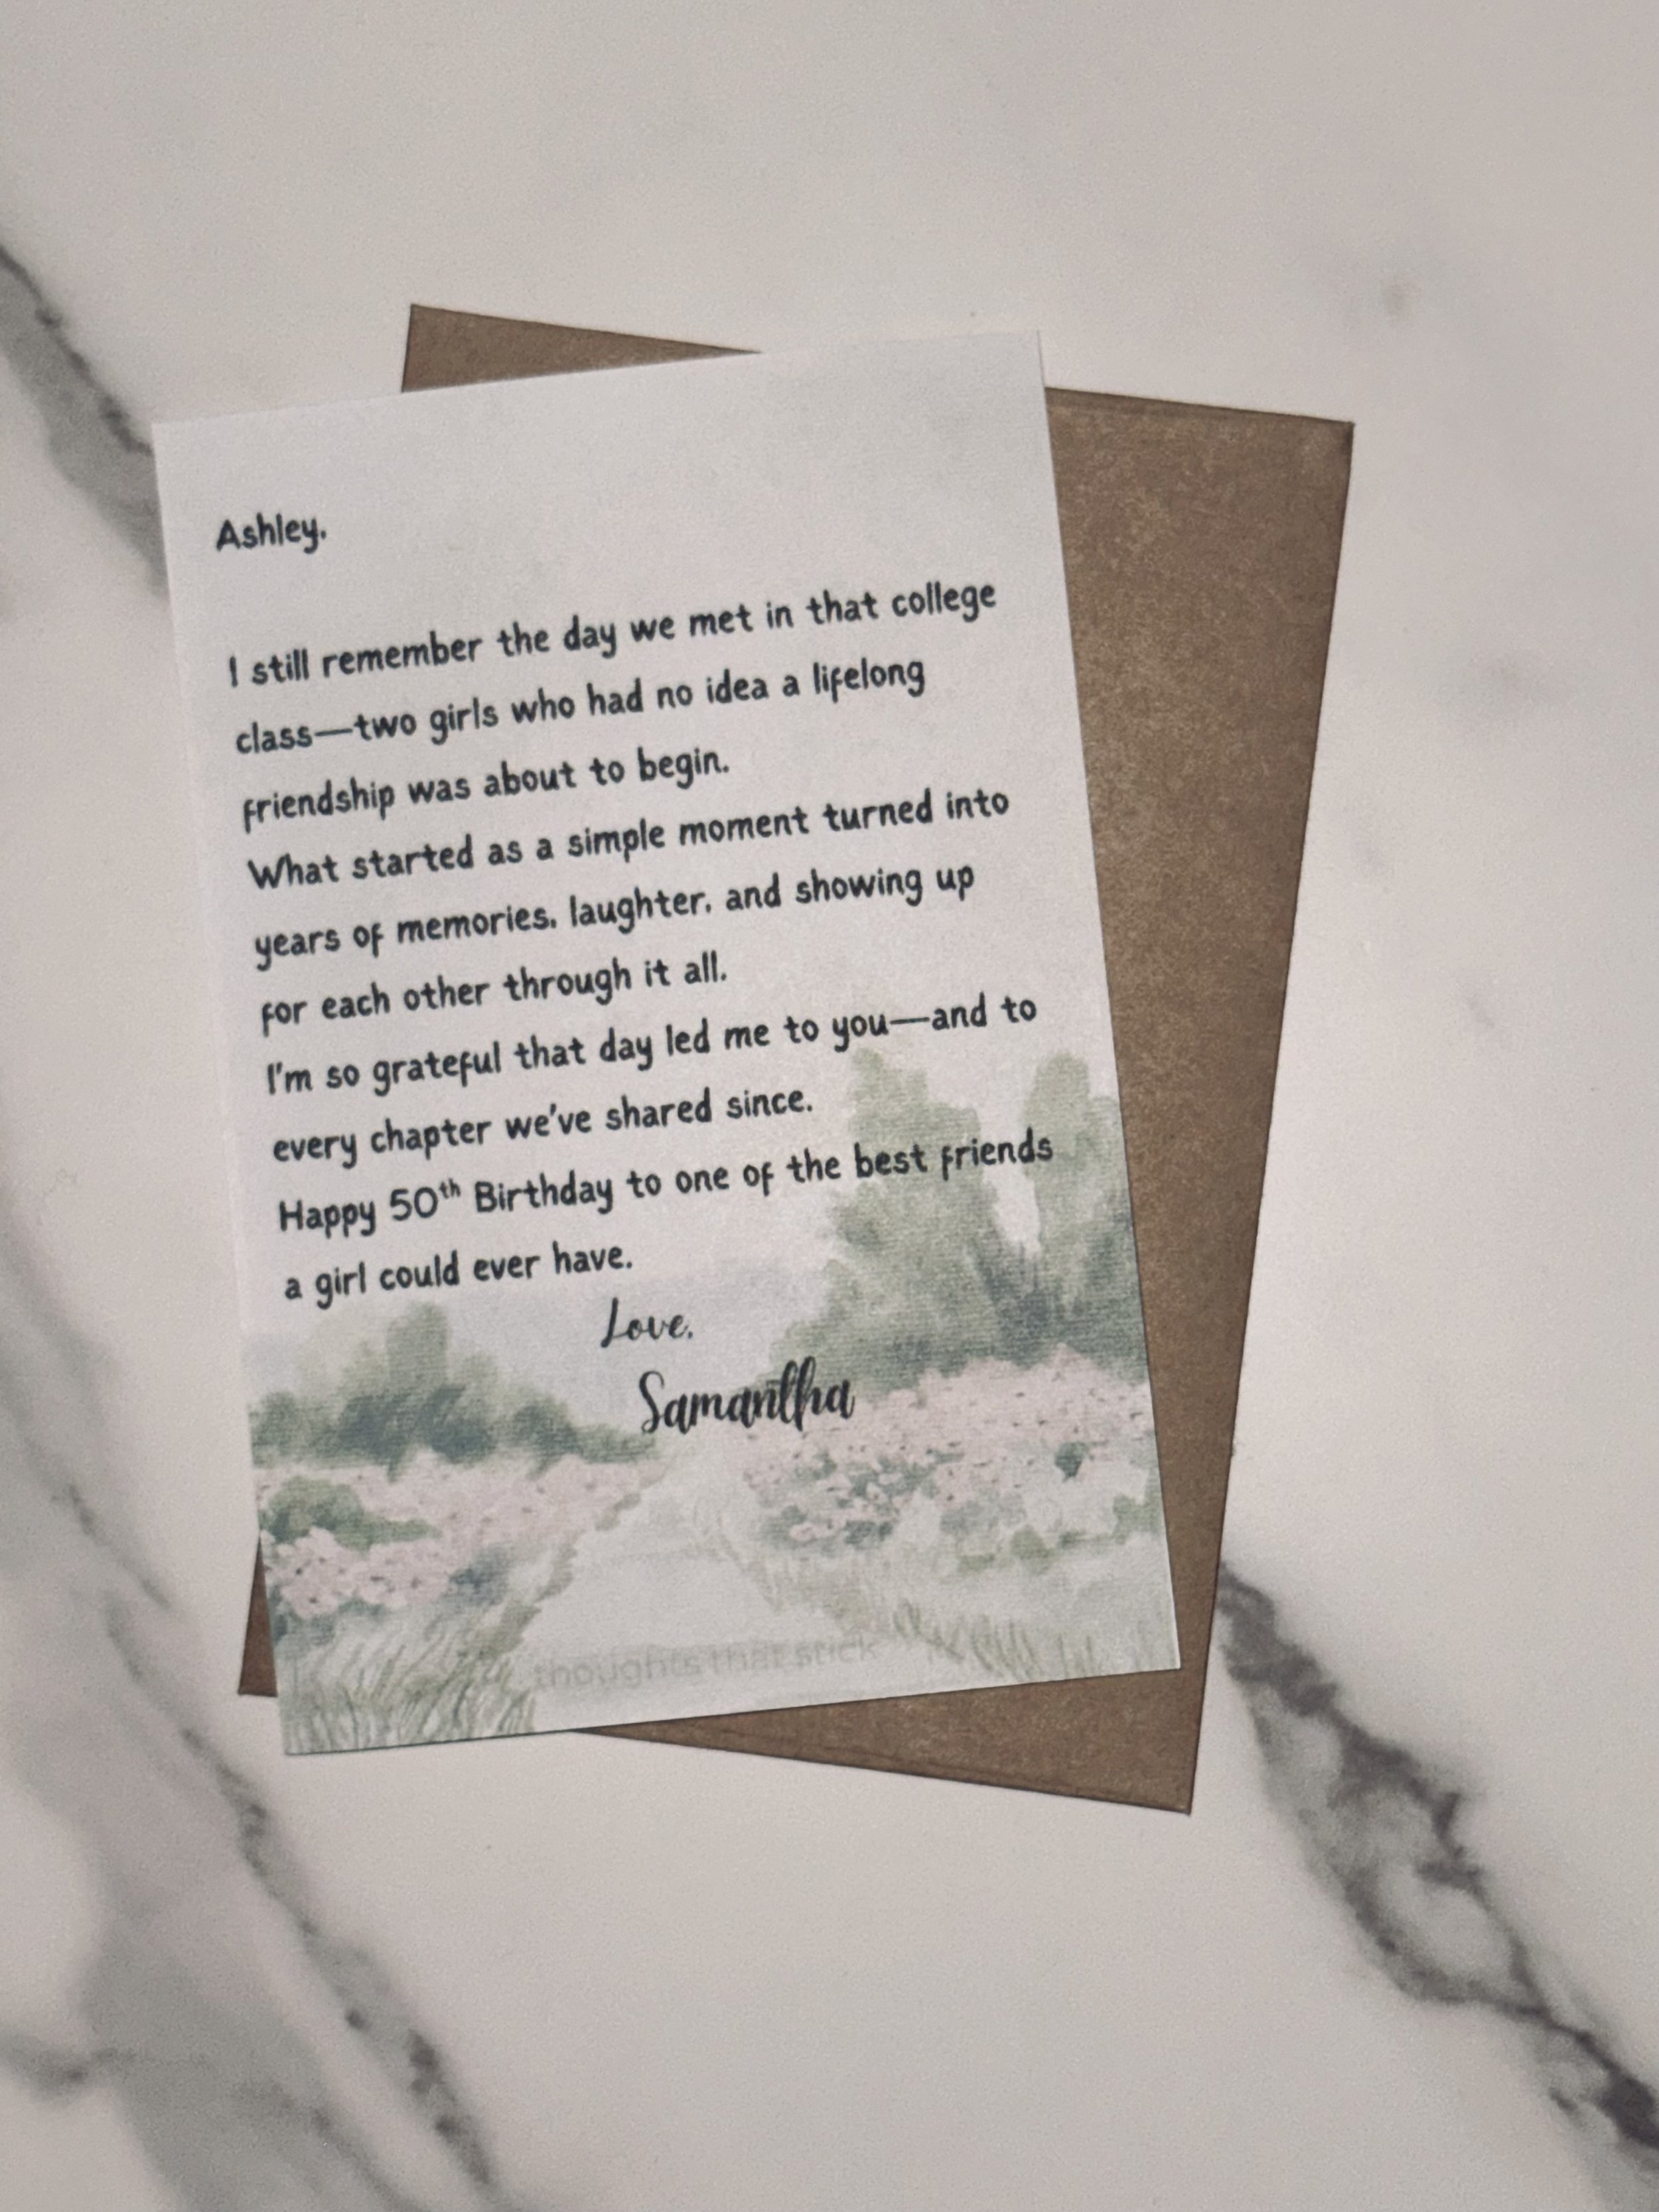 Ashley,
I still remember the day we met in that college
class—two girls who had no idea a lifelong
friendship was about to begin.
What started as a simple moment turned into
years of memories, laughter, and showing up
for each other through it all.
I'm so grateful that day led me to you—and to
every chapter we've shared since.
Happy 50th Birthday to one of the best friends
a girl could ever have.
Love,
Samantha
thoughts that stick